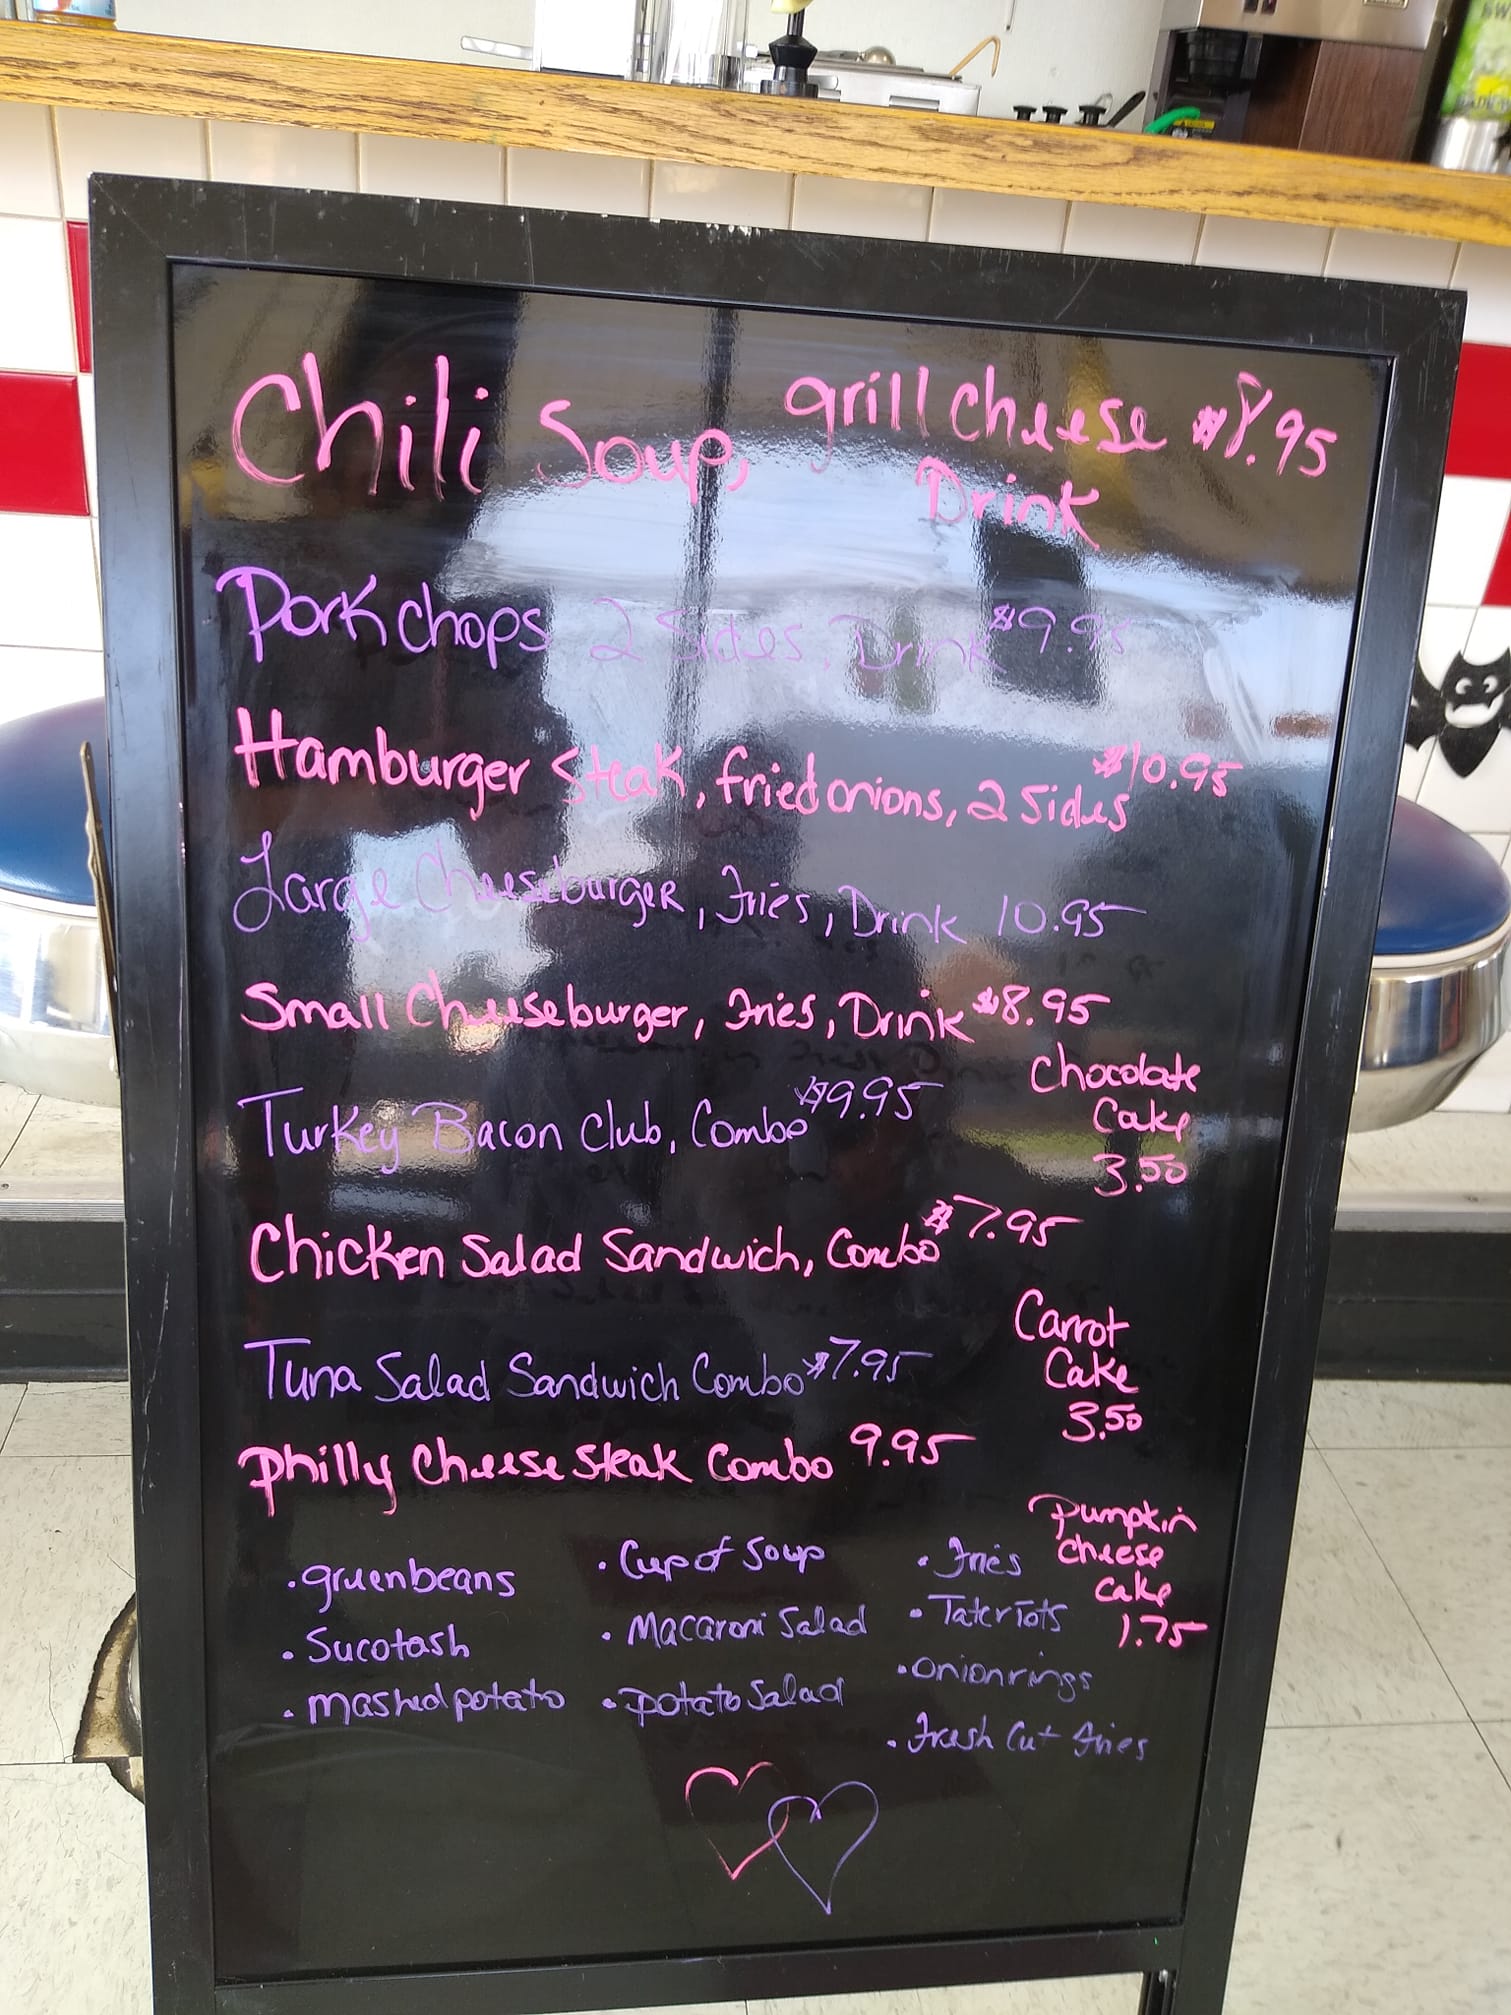 Chili Soup, grill Cheese $8.95
Drink
Pork Chops 2 Sides, Drink $9.95
Hamburger Steak, fried onions, 2 Sides $10.95
Large Cheeseburger, Fries, Drink 10.95
Small Cheeseburger, Fries, Drink $8.95
Turkey Bacon Club, Combo $9.95
Chocolate
Cake
3.50
Chicken Salad Sandwich, Combo $7.95
Tuna Salad Sandwich Combo $7.95
Carrot
Cake
3.50
Philly Cheese Steak Combo 9.95
Pumpkin
cheese
cake
1.75
• greenbeans
• Sucotash
• mashed potato
• Cup of Soup
• Macaroni Salad
• potato Salad
• Fries
• Tater Tots
• onion rings
• Fresh Cut fries